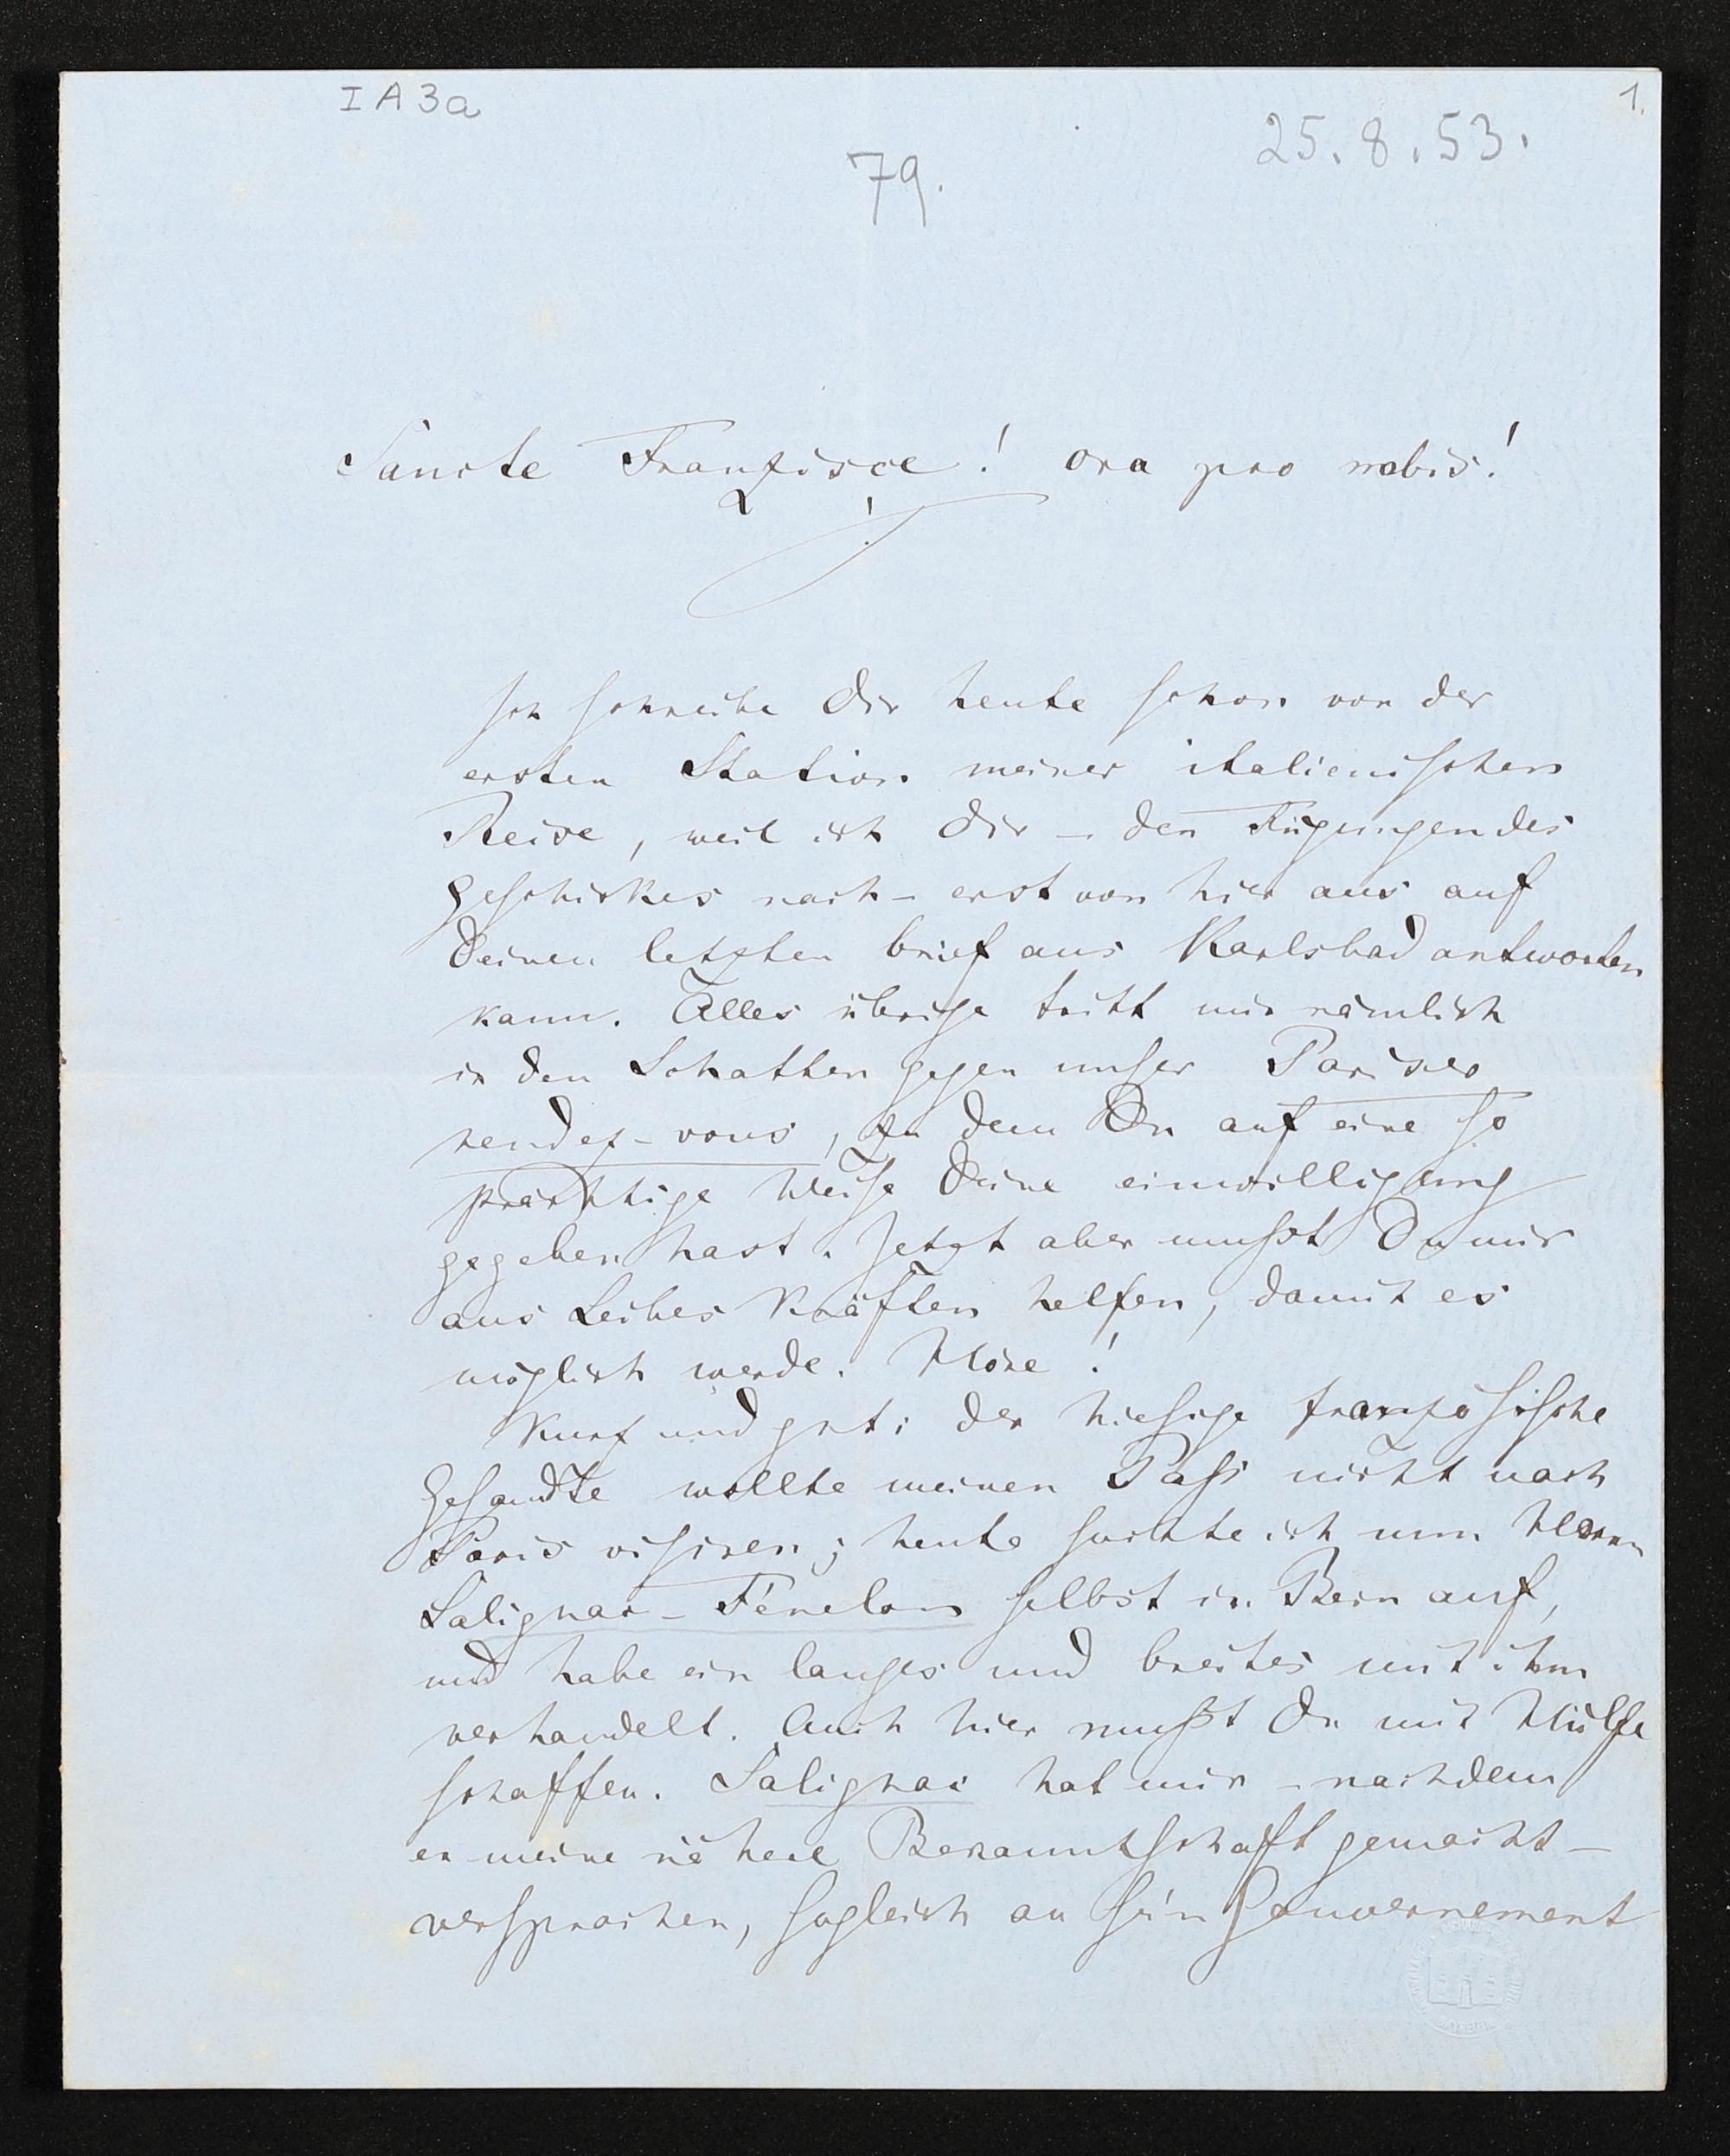 I A 3a
1.
25.8.53.
79.
Sancte Franzisce! ora pro nobis!
Ich schreibe Dir heute schon von der
ersten Station meiner italienischen
Reise, weil ich Dir – den Fügungen des
Geschickes nach – erst von hier aus auf
Deinen letzten brief aus Karlsbad antworten
kann. Alles übrige tritt mir nämlich
in den Schatten gegen unser Pariser
rendez-vous, zu dem Du auf eine so
prächtige Weise Deine einwilligung
gegeben hast. Jetzt aber mußt Du mir
aus Leibes Kräften helfen, damit es
möglich werde. Höre!
Kurz und gut: der hiesige französische
Gesandte wollte meinen Paß nicht nach
Paris visiren; heute suchte ich nun Herrn
Salignac-Fénelon selbst in Bern auf,
und habe ein langes und breites mit ihm
verhandelt. Auch hier mußt Du mir Hülfe
schaffen. Salignac hat mir – nachdem
er meine nähere Bekanntschaft gemacht –
versprochen, sogleich an sein Gouvernement